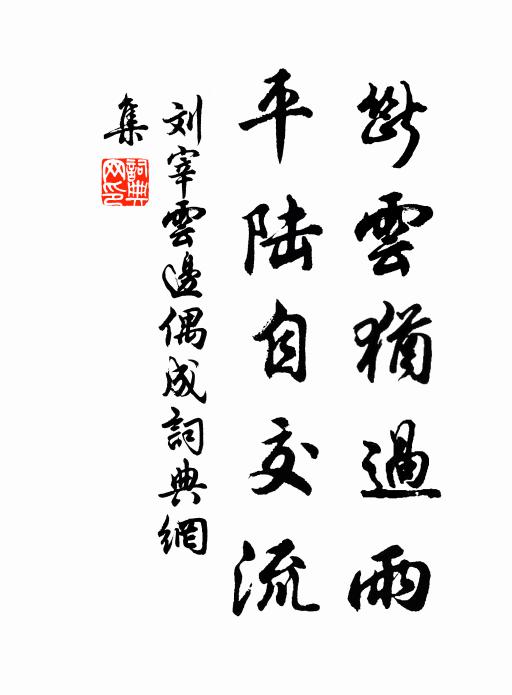 斷雲猶過雨
平陸自交流
刘宰雲邊偶成詞典網
集
詞典
网印